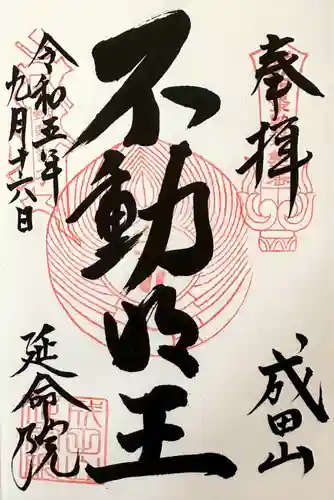 奉拝
成田山
不動明王
令和五年
九月十六日
延命院